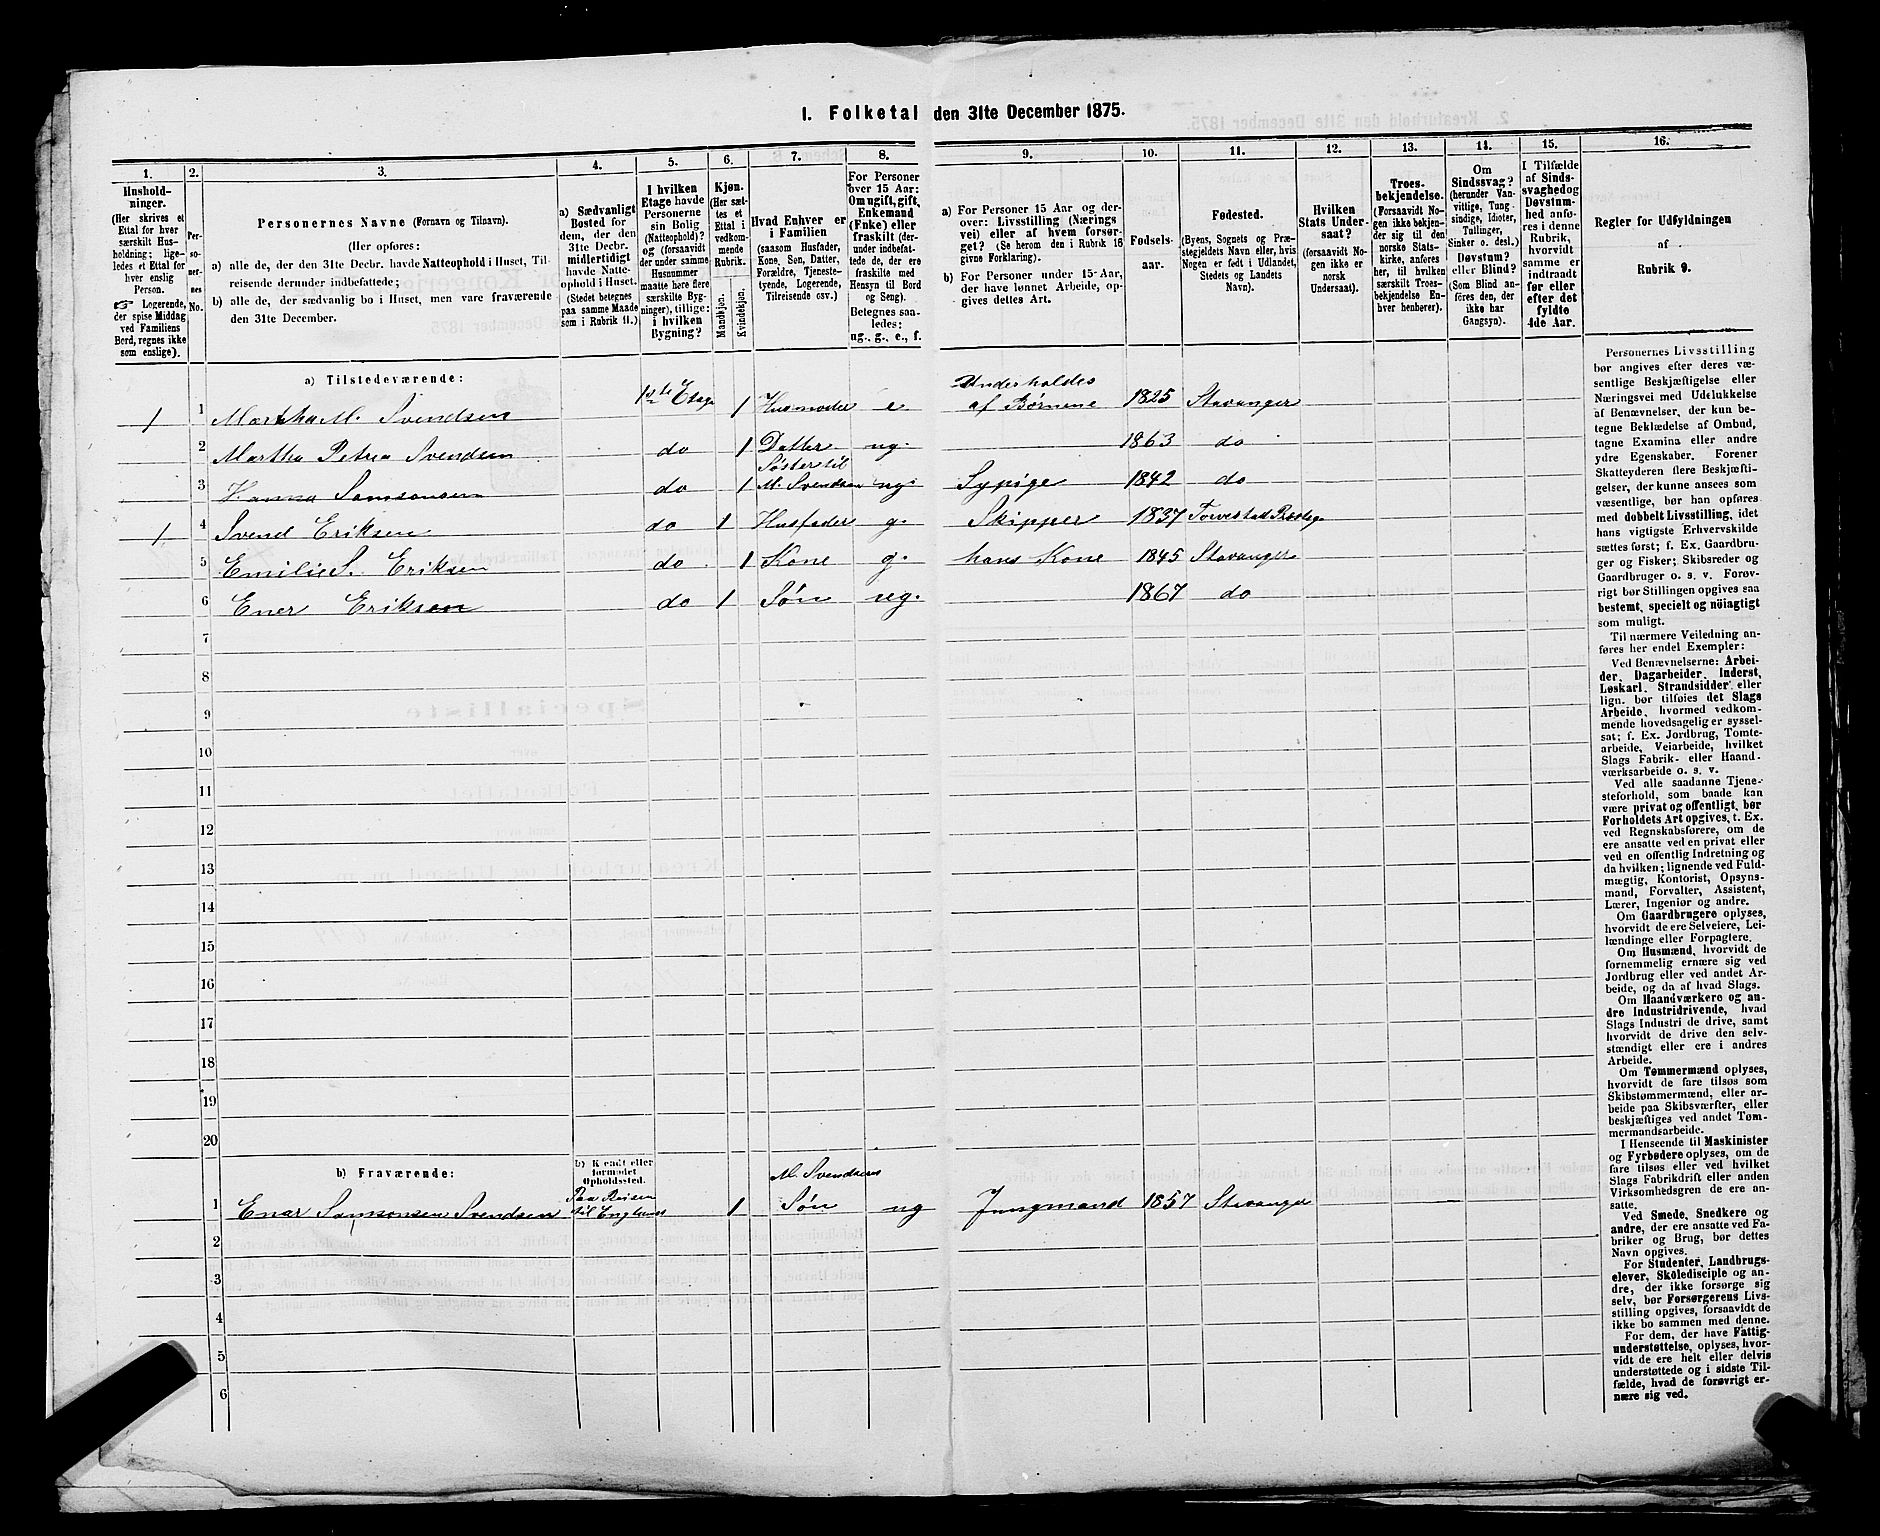 1. Folketal den 31te December 1875.
1. 2. 3. 4. 5. 6. 7. 8. 9. 10. 11. 12. 13. 14. 15. 16.
Hushold-
ninger.
(Her skrives et
Ettal for hver
særskilt Hus-
holdning; lige-
ledes et Ettal for
hver enslig
Person.
☞ Logerende,
der spise Middag
ved Familiens
Bord, regnes ikke
som enslige).
Per-
so-
ner-
nes
No.
Personernes Navne (Fornavn og Tilnavn).
(Her opføres:
a) alle de, der den 31te Decbr. havde Natteophold i Huset, Til-
reisende derunder indbefattede;
b) alle de, der sædvanlig bo i Huset, men vare fraværende
den 31te December.
a) Sædvanligt
Bosted for
dem, der den
31te Decbr.
midlertidigt
havde Natte-
ophold i Huset.
(Stedet betegnes
paa samme Maade
som i Rubrik 11.)
I hvilken
Etage havde
Personerne
sin Bolig
(Natteophold)?
og (forsaavidt
der under samme
Husnummer
maatte høre flere
særskilte Byg-
ninger), tillige:
i hvilken
Bygning?
Kjøn.
(Her sæt-
tes et
Ettal i
vedkom-
mende
Rubrik.
Mandkjøn.
Kvindekjøn.
Hvad Enhver er
i Familien
(saasom Husfader,
Kone, Søn, Datter,
Forældre, Tjeneste-
tyende, Logerende,
Tilreisende osv.)
For Personer
over 15 Aar:
Om ugift, gift,
Enkemand
(Enke) eller
fraskilt (der-
under indbefat-
tede de, der ere
fraskilte med
Hensyn til Bord
og Seng).
Betegnes saa-
ledes:
ug., g., e., f.
a) For Personer 15 Aar og der-
over: Livsstilling (Nærings
vei) eller af hvem forsør-
get? (Se herom den i Rubrik 16
givne Forklaring).
b) For Personer under 15 Aar,
der have lønnet Arbeide, op-
gives dettes Art.
Fødsels-
aar.
Fødested.
(Byens, Sognets og Præ-
stegjeldets Navn eller, hvis
Nogen er født i Udlandet,
Stedets og Landets
Navn).
Hvilken
Stats Under-
saat?
(forsaavidt No-
gen ikke er
norsk
Undersaat).
Troes-
bekjendelse.
(Forsaavidt No-
gen ikke bekjen-
der sig til den
norske Stats-
kirke, anføres
her, til hvilken
særskilt Troes-
bekjendelse En-
hver henhører).
Om
Sindssvag?
(herunder Van-
vittige, Tung-
sindige, Idioter,
Tullinger,
Sinker o. desl.)
Døvstum?
eller Blind?
(Som Blind an-
føres den, der
ikke har
Gangsyn).
I Tilfælde
af Sinds-
svaghed og
Døvstum-
hed anfø-
res i denne
Rubrik,
hvorvidt
samme er
indtraadt
før eller
efter det
fyldte
4de Aar.
Regler for Udfyldningen
af
Rubrik 9.
a) Tilstedeværende:
1 1 Martha M. Svendsen 1ste Etage 1 Husmoder e Underholdes af Børnene 1825 Stavanger
2 Martha Petrea Svendsen do 1 Datter ug. 1863 do
3 Hanna Samsonsen do 1 Søster til M. Svendsen ug. Sypige 1842 do
1 4 Svend Eriksen do 1 Husfader g. Skipper 1837 Torvestad
5 Emilie S. Eriksen do 1 Kone g. hans Kone 1845 Stavanger
6 Ener Eriksen do 1 Søn ug. 1867 do
7
8
9
10
11
12
13
14
15
16
17
18
19
20
b) Fraværende:
b) Kjendt eller
formodet
Opholdssted.
1 Enar Samsonsen Svendsen Paa Reisen til England 1 M. Svendsens Søn ug Jungmand 1857 Stavanger
2
3
4
5
6
Personernes Livsstilling
bør angives efter deres væ-
sentlige Beskjæftigelse eller
Næringsvei med Udelukkelse
af Benævnelser, der kun be-
tegne Beklædelse af Ombud,
tagne Examina eller andre
ydre Egenskaber. Forener
Skatteyderen flere Beskjæfti-
gelser, der kunne ansees som
væsentlige, bør han opføres
med dobbelt Livsstilling, idet
hans vigtigste Erhvervskilde
sættes først; f. Ex. Gaardbru-
ger og Fisker; Skibsreder og
Gaardbruger o. s. v. Forøv-
rigt bør Stillingen opgives saa
bestemt, specielt og nöiagtigt
som muligt.
Til nærmere Veiledning an-
føres her endel Exempler:
Ved Benævnelserne: Arbei-
der, Dagarbeider, Inderst,
Løskarl, Strandsidder eller
lign. bør tilføies det Slags
Arbeide, hvormed vedkom-
mende hovedsagelig er syssel-
sat; f. Ex. Jordbrug, Tomte-
arbeide, Veiarbeide, hvilket
Slags Fabrik- eller Haand-
værksarbeide o. s. v.
Ved alle saadanne Tjene-
steforhold, som baade kan
være privat og offentligt, bør
Forholdets Art opgives, t. Ex.
ved Regnskabsførere, om de
ere ansatte ved en privat eller
ved en offentlig Indretning og
da hvilken; lignende ved Fuld-
mægtig, Kontorist, Opsyns-
mand, Forvalter, Assistent,
Lærer, Ingeniør og andre.
Om Gaardbrugere oplyses,
hvorvidt de ere Selveiere, Lei-
lændinge eller Forpagtere.
Om Husmænd, hvorvidt de
fornemmelig ernære sig ved
Jordbrug eller ved andet Ar-
beide, og da af hvad Slags.
Om Haandværkere og an-
dre Industridrivende, hvad
Slags Industri de drive, samt
hvorvidt de drive den selv-
stændigt eller ere i andres
Arbeide.
Om Tømmermænd oplyses,
hvorvidt de fare tilsøs som
Skibstømmermænd, eller ar-
beide paa Skibsværfter, eller
beskjæftiges ved andet Tøm-
mermandsarbeide.
I Henseende til Maskinister
og Fyrbødere oplyses, om de
fare tilsøs eller ved hvilket
Slags Fabrikdrift eller anden
Virksomhedsgren de ere an-
satte.
Ved Smede, Snedkere og
andre, der ere ansatte ved Fa-
briker og Brug, bør dettes
Navn opgives.
For Studenter, Landbrugs-
elever, Skoledisciple og an-
dre, der ikke forsørge sig
selv, bør Forsørgerens Livs-
stilling opgives, forsaavidt de
ikke bo sammen med denne.
For dem, der have Fattig-
understøttelse, oplyses, hvor-
vidt de ere helt eller delvis
understøttede og i sidste Til-
fælde, hvad de forøvrigt er-
nære sig ved.